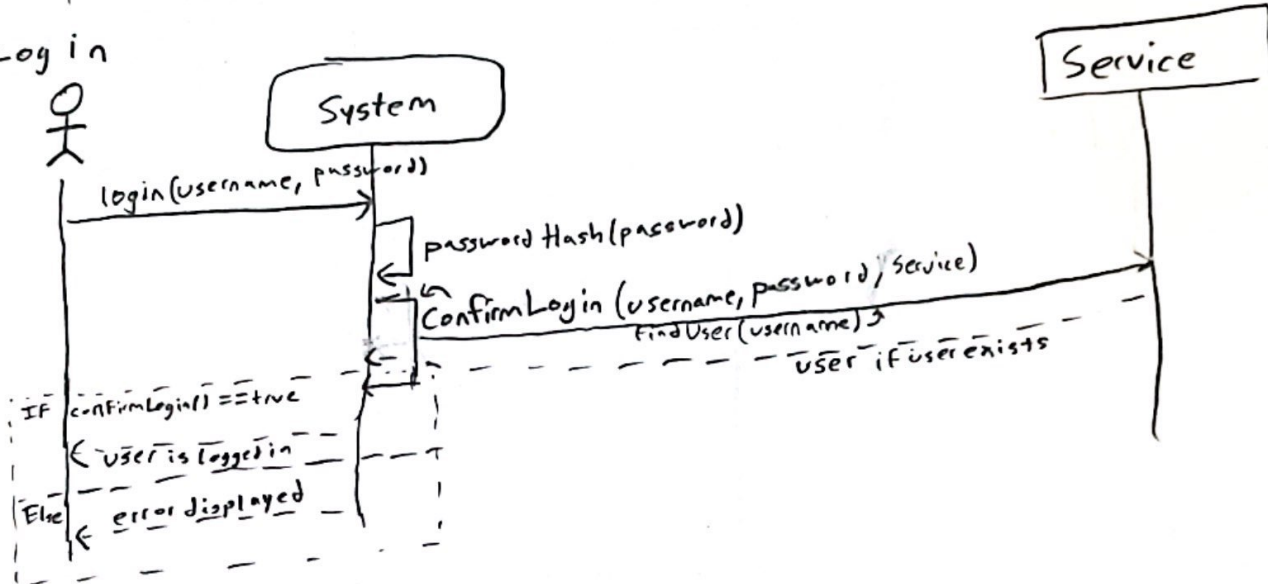 Log in
System
Service
login(username, password)
passwordHash(password)
ConfirmLogin (username, password, Service)
findUser(username)
user if user exists
IF confirmLogin() == true
user is logged in
Else
error displayed